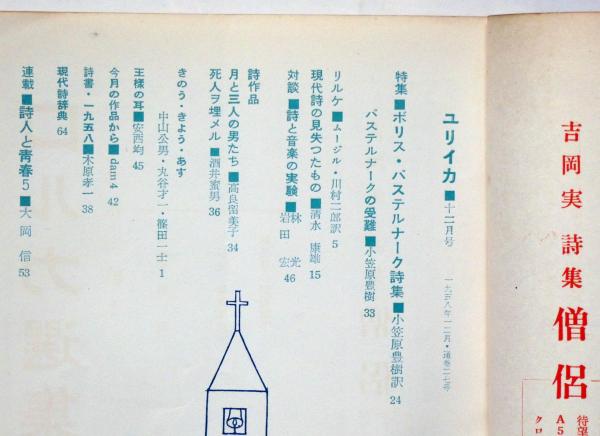 ユリイカ■十二月号
一九五八年一二月・通巻二七号
特集■ボリス・パステルナーク詩集■小笠原豊樹訳 24
パステルナークの受難■小笠原豊樹 33
リルケ■ムージル・川村二郎訳 5
現代詩の見失つたもの■清水康雄 15
対談■詩と音楽の実験■林光 岩田宏 46
詩作品
月と三人の男たち■高良留美子 34
死人ヲ埋メル■酒井蜜男 36
きのう・きよう・あす
中山公男・丸谷才一・篠田一士 1
王様の耳■安西均 45
今月の作品から■dam 4 42
詩書・一九五八■木原孝一 38
現代詩辞典 64
連載■詩人と青春 5■大岡信 53
吉岡実 詩集 僧侶
待望
A5
クロ